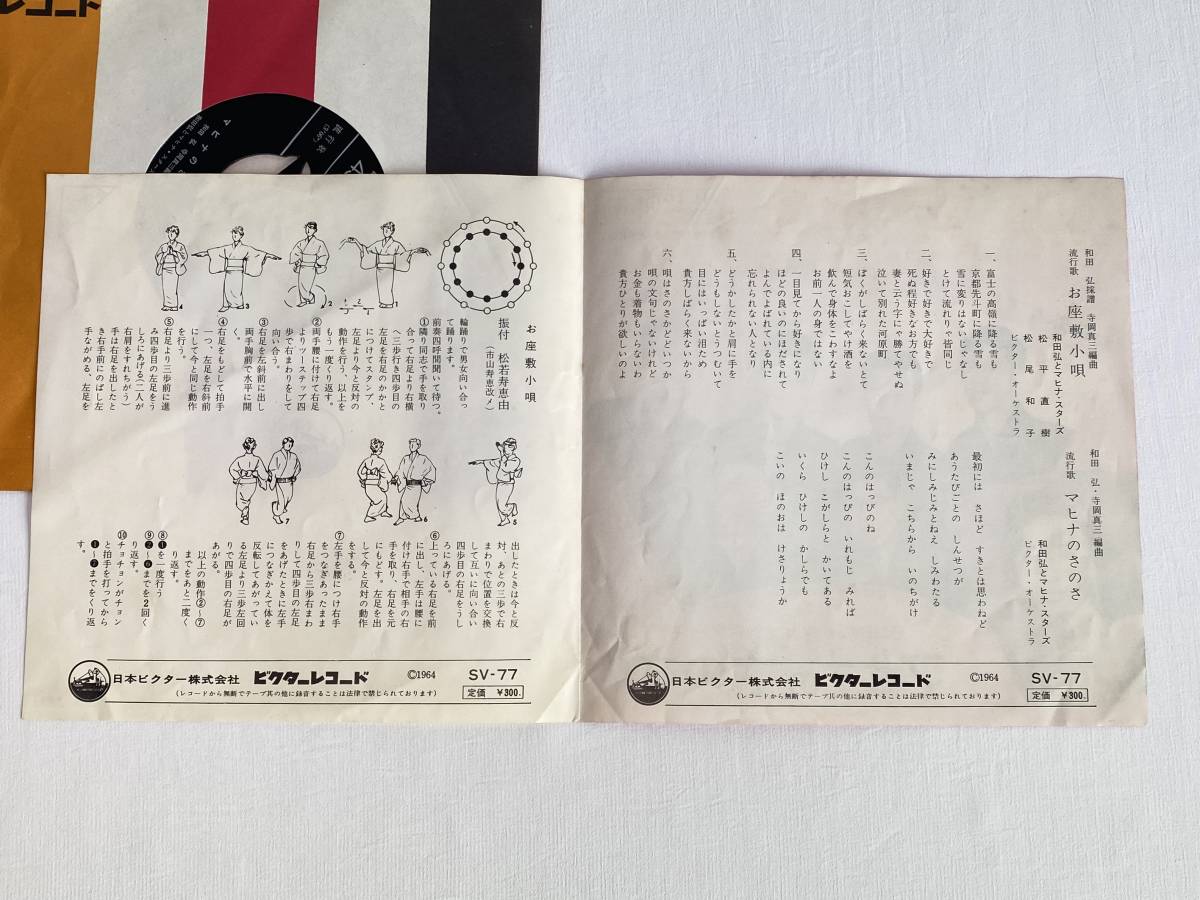 レコード
流行歌
マヒナの
45
和田 弘採譜 寺岡真三編曲
流行歌 お座敷小唄
和田弘とマヒナ・スターズ
松平直樹
松尾和子
ビクター・オーケストラ
一、富士の高嶺に降る雪も
京都先斗町に降る雪も
雪に変りはないじゃなし
とけて流れりゃ皆同じ
二、好きで好きで大好きで
死ぬ程好きなお方でも
妻と云う字にゃ勝てやせぬ
泣いて別れた河原町
三、ぼくがしばらく来ないとて
短気おこしてやけ酒を
飲んで身体をこわすなよ
お前一人の身ではない
四、一目見てから好きになり
ほどの良いのにほだされて
よんでよばれている内に
忘れられない人となり
五、どうかしたかと肩に手を
どうもしないとうつむいて
目にはいっぱい泪ため
貴方しばらく来ないから
六、唄はさのさかどどいつか
唄の文句じゃないけれど
お金も着物もいらないわ
貴方ひとりが欲しいのよ
和田 弘・寺岡真三 編曲
流行歌 マヒナのさのさ
和田弘とマヒナ・スターズ
ビクター・オーケストラ
最初には さほど すきとは思わねど
あうたびごとの しんせつが
みにしみじみとねえ しみわたる
いまじゃ こちらから いのちがけ
こんのはっぴのね
こんのはっぴの いれもじ みれば
ひけし こがしらと かいてある
いくら ひけしの かしらでも
こいの ほのおは けさりょうか
日本ビクター株式会社 ビクターレコード ©1964 SV-77
(レコードから無断でテープ其の他に録音することは法律で禁じられております) 定価 ¥300.
お座敷小唄
振付 松若寿恵由
(市山寿恵改メ)
輪踊りで男女向い合っ
て踊ります。
前奏四呼間聞いて待つ。
①隣り同志で手を取り
合って右足より右横
へ三歩行き四歩目の
左足を右足のかかと
につけてスタンプ、
左足より今と反対の
動作を行う。以上を
もう一度くり返す。
②両手腰に付けて右足
よりツーステップ四
歩で右まわりをして
向い合う。
③右足を左斜前に出し
両手胸前で水平に開
く。
④右足をもどして拍手
一つ、左足を右斜前
にして今と同じ動作
を行う。
⑤右足より三歩前に進
み四歩目の左足をう
しろにあげる(二人が
右肩をすれちがう)
手は右足を出したと
き右手前にのばし左
手ながめる。左足を
1
2
3
4
5
6
7
出したときは今と反
対、あとの三歩で右
まわりで位置を交換
して互いに向い合い
四歩目の右足をうし
ろにあげる。
⑥上っている右足を前
に出し、左手は腰に
付け右手で相手の右
手を取り、右足を元
にもどす。左足を出
して今と反対の動作
をする。
⑦左手を腰につけ右手
をつなぎあったまま
右足から三歩右まわ
りして四歩目の左足
をあげたときに左手
につなぎかえて体を
反転してあがってい
る左足より三歩左回
りで四歩目の右足が
あがる。
以上の動作②〜⑦
までをあと二度く
り返す。
⑧❶を一度行う
⑨❷〜❻までを2回く
り返す。
⑩チョチョンがチョン
と拍手を打ってから
❶〜❼までをくり返
す。
日本ビクター株式会社 ビクターレコード ©1964 SV-77
(レコードから無断でテープ其の他に録音することは法律で禁じられております) 定価 ¥300.